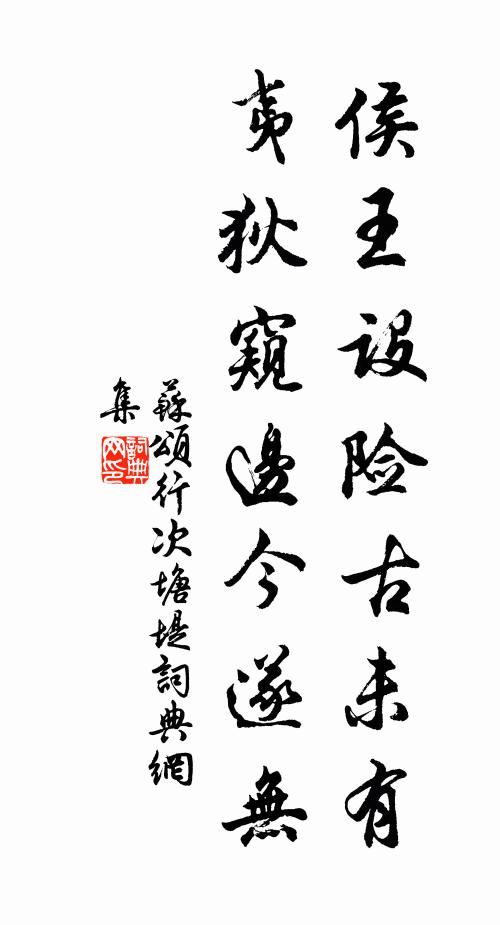 侯王設险古未有
夷狄窺邊今遂無
蘇頌行次塘堤詞典網
集
詞典
网印